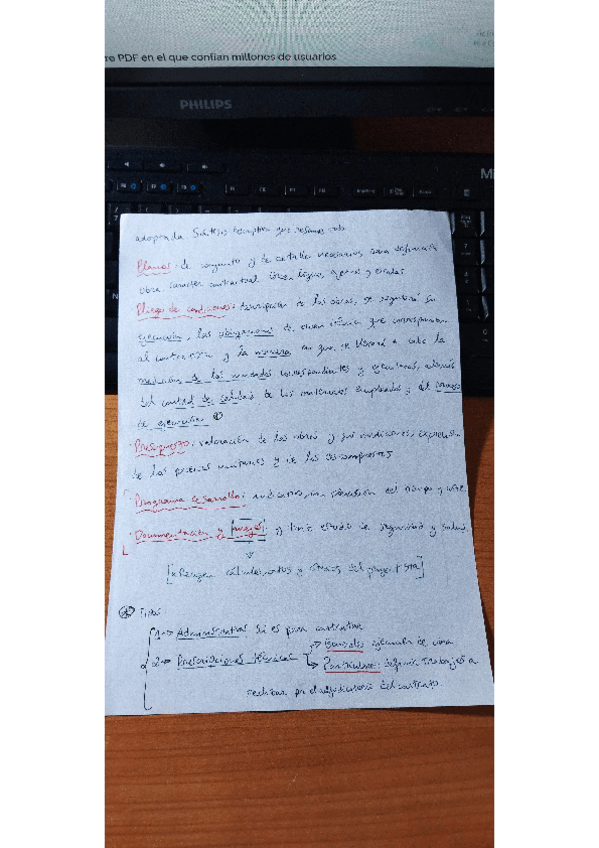 re PDF en el que confían millones de usuarios
PHILIPS
adoptada Síntesis
Planos: de conjunto y de detalle necesarios para
obra. caracter contractual
Pliego de condiciones: descripción de las obras, se regulará su
ejecución, las obligaciones de orden técnico que correspondan
al contratista y la manera en que se llevará a cabo la
medición de las unidades correspondientes y ejecutadas, además
del control de calidad de los materiales empleados y del proceso
de ejecución
Presupuesto: valoración de las obras y sus mediciones, expresión
de los precios unitarios y de los descompuestos
Programa desarrollo: indicativo, del tiempo y coste
Documentación y anejos: y tendrá estudio de seguridad y salud.
[Recogen cálculos y del proyectista]
Tipos:
1→ Administrativas Si es para contratar
2→ Prescripciones técnicas → Generales
→ Particulares: definir trabajos a
realizar por el adjudicatario del contrato.